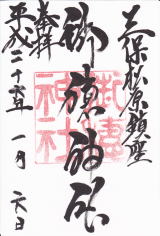 三保松原鎮座
御穂神社
奉拝
平成二十六年一月六日
御穂
神社